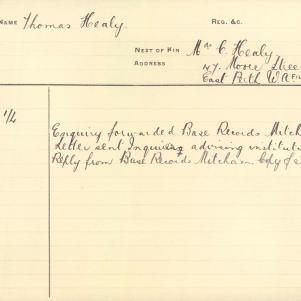 NAME Thomas Healy. REG. &C.
NEXT OF KIN Mrs C. Healy,
ADDRESS 47. Moore Stree
East Perth W.A
1/4
Enquiry forwarded Base Records Mitch
Letter sent Inquirer advising institut
Reply from Base Records Mitcham. Copy of